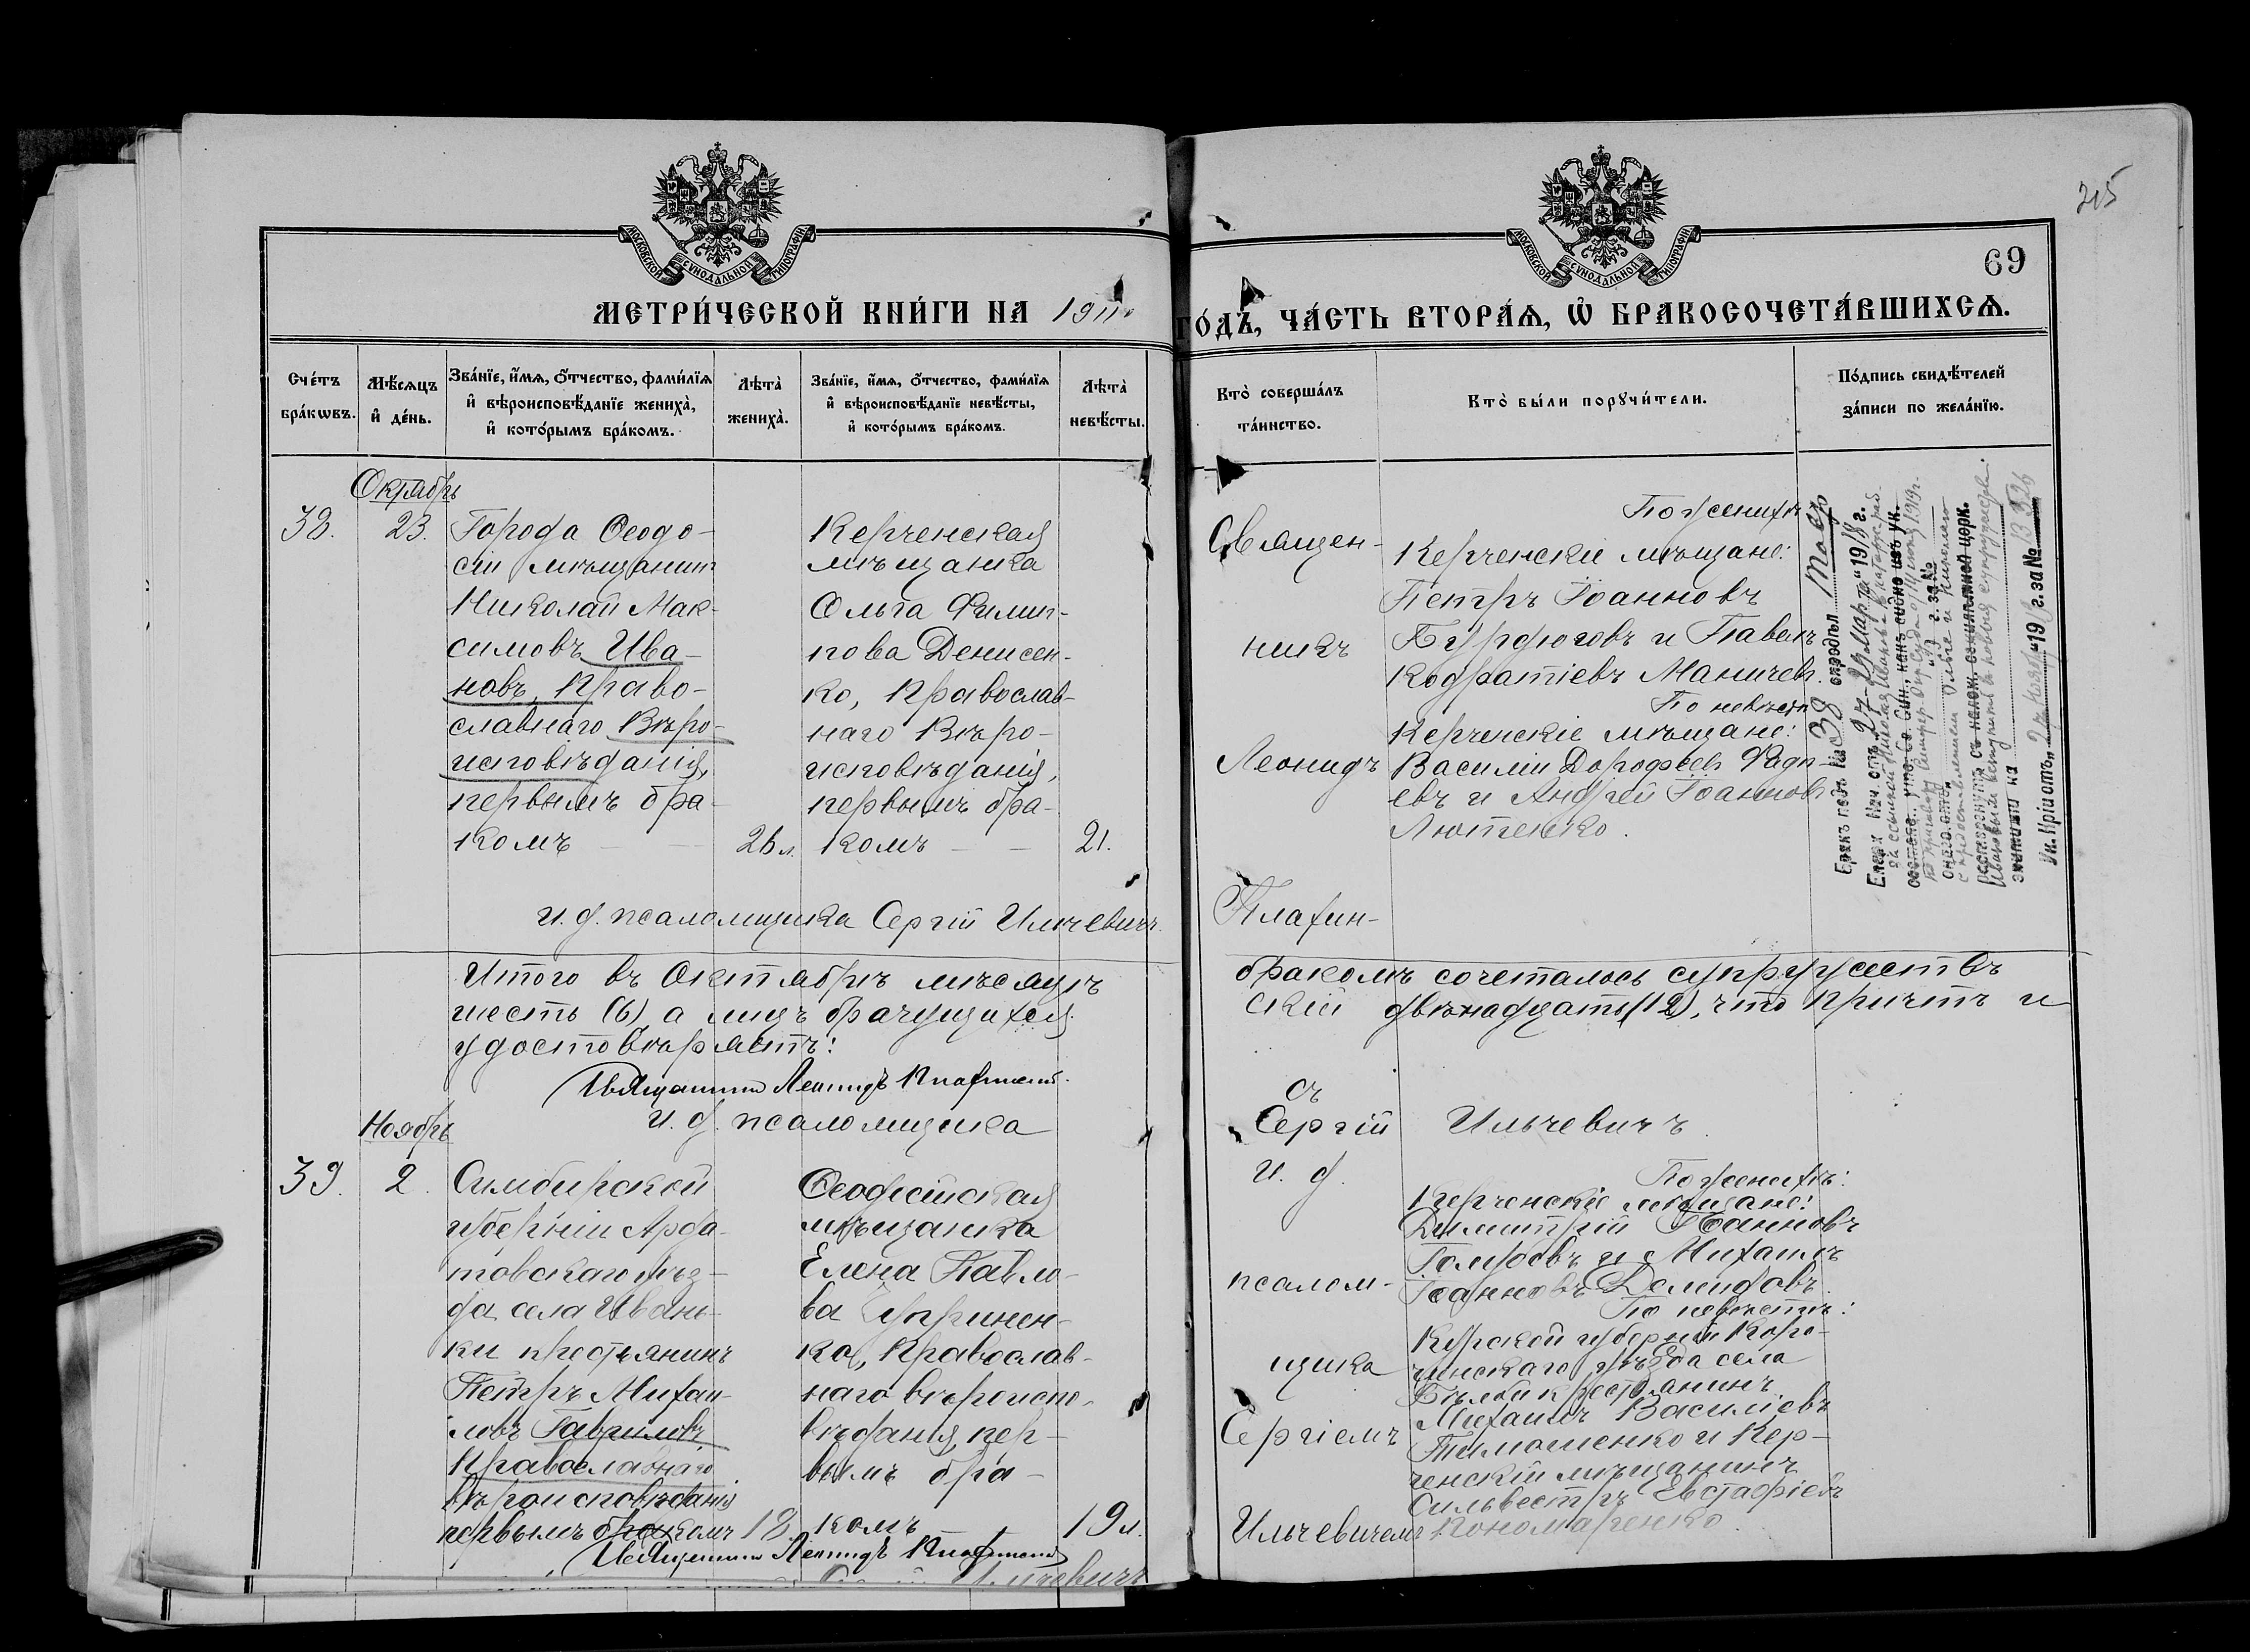 215
69
МОСКОВСКОЙ СУНОДАЛЬНОЙ ТИПОГРАФІИ
МОСКОВСКОЙ СУНОДАЛЬНОЙ ТИПОГРАФІИ
МЕТРИ́ЧЕСКОЙ КНИ́ГИ НА 1911
ГО́ДЪ, ЧА́СТЬ ВТОРА́Ѧ, Ѽ БРАКОСОЧЕТА́ВШИХСѦ.
Сче́тъ бра́кѡвъ.
Мѣ́сѧцъ и҆ де́нь.
Зва́нїе, и҆́мѧ, ѻ҆́тчество, фами́лїѧ
и҆ вѣроисповѣ́данїе жениха̀,
и҆ кото́рымъ бра́комъ.
Лѣта̀ жениха̀.
Зва́нїе, и҆́мѧ, ѻ҆́тчество, фами́лїѧ
и҆ вѣроисповѣ́данїе невѣ́сты,
и҆ кото́рымъ бра́комъ.
Лѣта̀ невѣ́сты.
Кто̀ соверша́лъ та́инство.
Кто̀ бы́ли порꙋчи́тели.
По́дпись свидѣ́телей
за́писи по жела́нїю.
Октябрь
38.
23.
Города Ѳеодо-
сіи мѣщанинъ
Николай Мак-
симовъ Ива-
новъ, Право-
славнаго Вѣро-
исповѣданія,
первымъ бра-
комъ
26 л.
Керченская
мѣщанка
Ольга Филип-
пова Денисен-
ко, Православ-
наго Вѣро-
исповѣданія,
первымъ бра-
комъ
21.
Священ-
никъ
Леонидъ
Плахин-
скій
По женихѣ
Керченскіе мѣщане:
Петръ Іоанновъ
и Павелъ
Кодратіевъ Маничев.
По невѣстѣ
Керченскіе мѣщане:
Василій Дорофѣев
евъ и Андрей Іоаннов
Лютенко.
Бракъ подъ № 38
Епарх Нач. отъ „27-29 Марта" 1918 г.
Ук. Крі
"19 г. за №
и. д. псаломщика Сергій Ильчевичъ.
Итого въ Октябрѣ мѣсяцѣ
бракомъ сочеталось супружествъ
шесть (6) а лицъ брачущихся
двѣнадцать (12), что причтъ и
удостовѣряетъ:
Священникъ Леонидъ Плахинскій.
съ
и. д. псаломщика
Сергій Ильчевичъ
Ноябрь
39.
2.
Симбирской
губерніи Арда-
товскаго уѣз-
да села Ивань-
ки крестьянинъ
Петръ Михаи-
ловъ Гавриловъ,
Православнаго
вѣроисповѣданія
первымъ бракомъ
18.
Ѳеодосійская
мѣщанка
Елена Павло-
ва
ко, Православ-
наго вѣроиспо-
вѣданія, пер-
вымъ бра-
комъ
19 л.
И. д.
псалом-
щика
Сергіемъ
Ильчевичемъ
По женихѣ:
Керченскіе мѣщане:
Димитрій Іоанновъ
и Михаилъ
Іоанновъ Демидовъ.
По невѣстѣ:
Курской губерніи Коро-
чинскаго уѣзда села
крестьянинъ
Михаилъ Василіевъ
Тимошенко и Кер-
ченскій мѣщанинъ
Сильвестръ Евстафіевъ
Пономаренко.
Священникъ Леонидъ Плахинскій